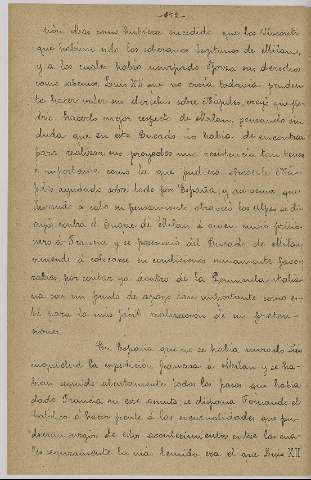 -842-
ción chos como hubiese sucedido que los Visconti
que habian sido los soberanos legitimos de Milan,
y a los cuales habia usurpado Sforza sus derechos
como abemos, Luis XII que no creia todavia pruden
te hacer valer sus derechos sobre Nápoles, creyó que po
dria hacerlo mejor respecto de Milan, pensando sin
duda que en este Ducado no habia de encontrar
para realizar sus proyectos una resistencia tan tenaz
é importante como la que pudiera ofrecerle Ná-
poles apoyado sobre todo por España, y asi
á cabo su pensamiento atravesó los Alpes se di
rigió contra el Duque de Milan á quien hizo prisio
nero á Francia y se posesionó del Ducado de Milan,
viniendo á colocarse en condiciones sumamente favo
rables, por contar ya dentro de la Peninsula italia
na con un punto de apoyo tan importante como es
te para la mas facil realizacion de sus preten-
siones.
En España que no se habia mirado sin
inquietud la expedicion francesa á Milan y se ha-
bian seguido atentamente todos los pasos que habia
dado Francia en este asunto se disponia Fernando el
Católico á hacer frente á las eventualidades que pu-
dieran surgir de estos acontecimientos entre las cua-
les seguramente la mas temida era el que Luis XII